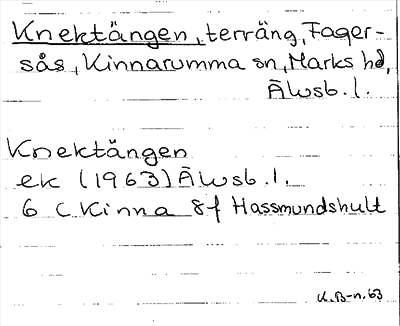 Knektängen, terräng, Fager-
sås, Kinnarumma sn, Marks hd,
Älvsb. l.
Knektängen
ek (1963) Älvsb. l.
6 C Kinna 8f Hassmundshult
K. B-n. 63